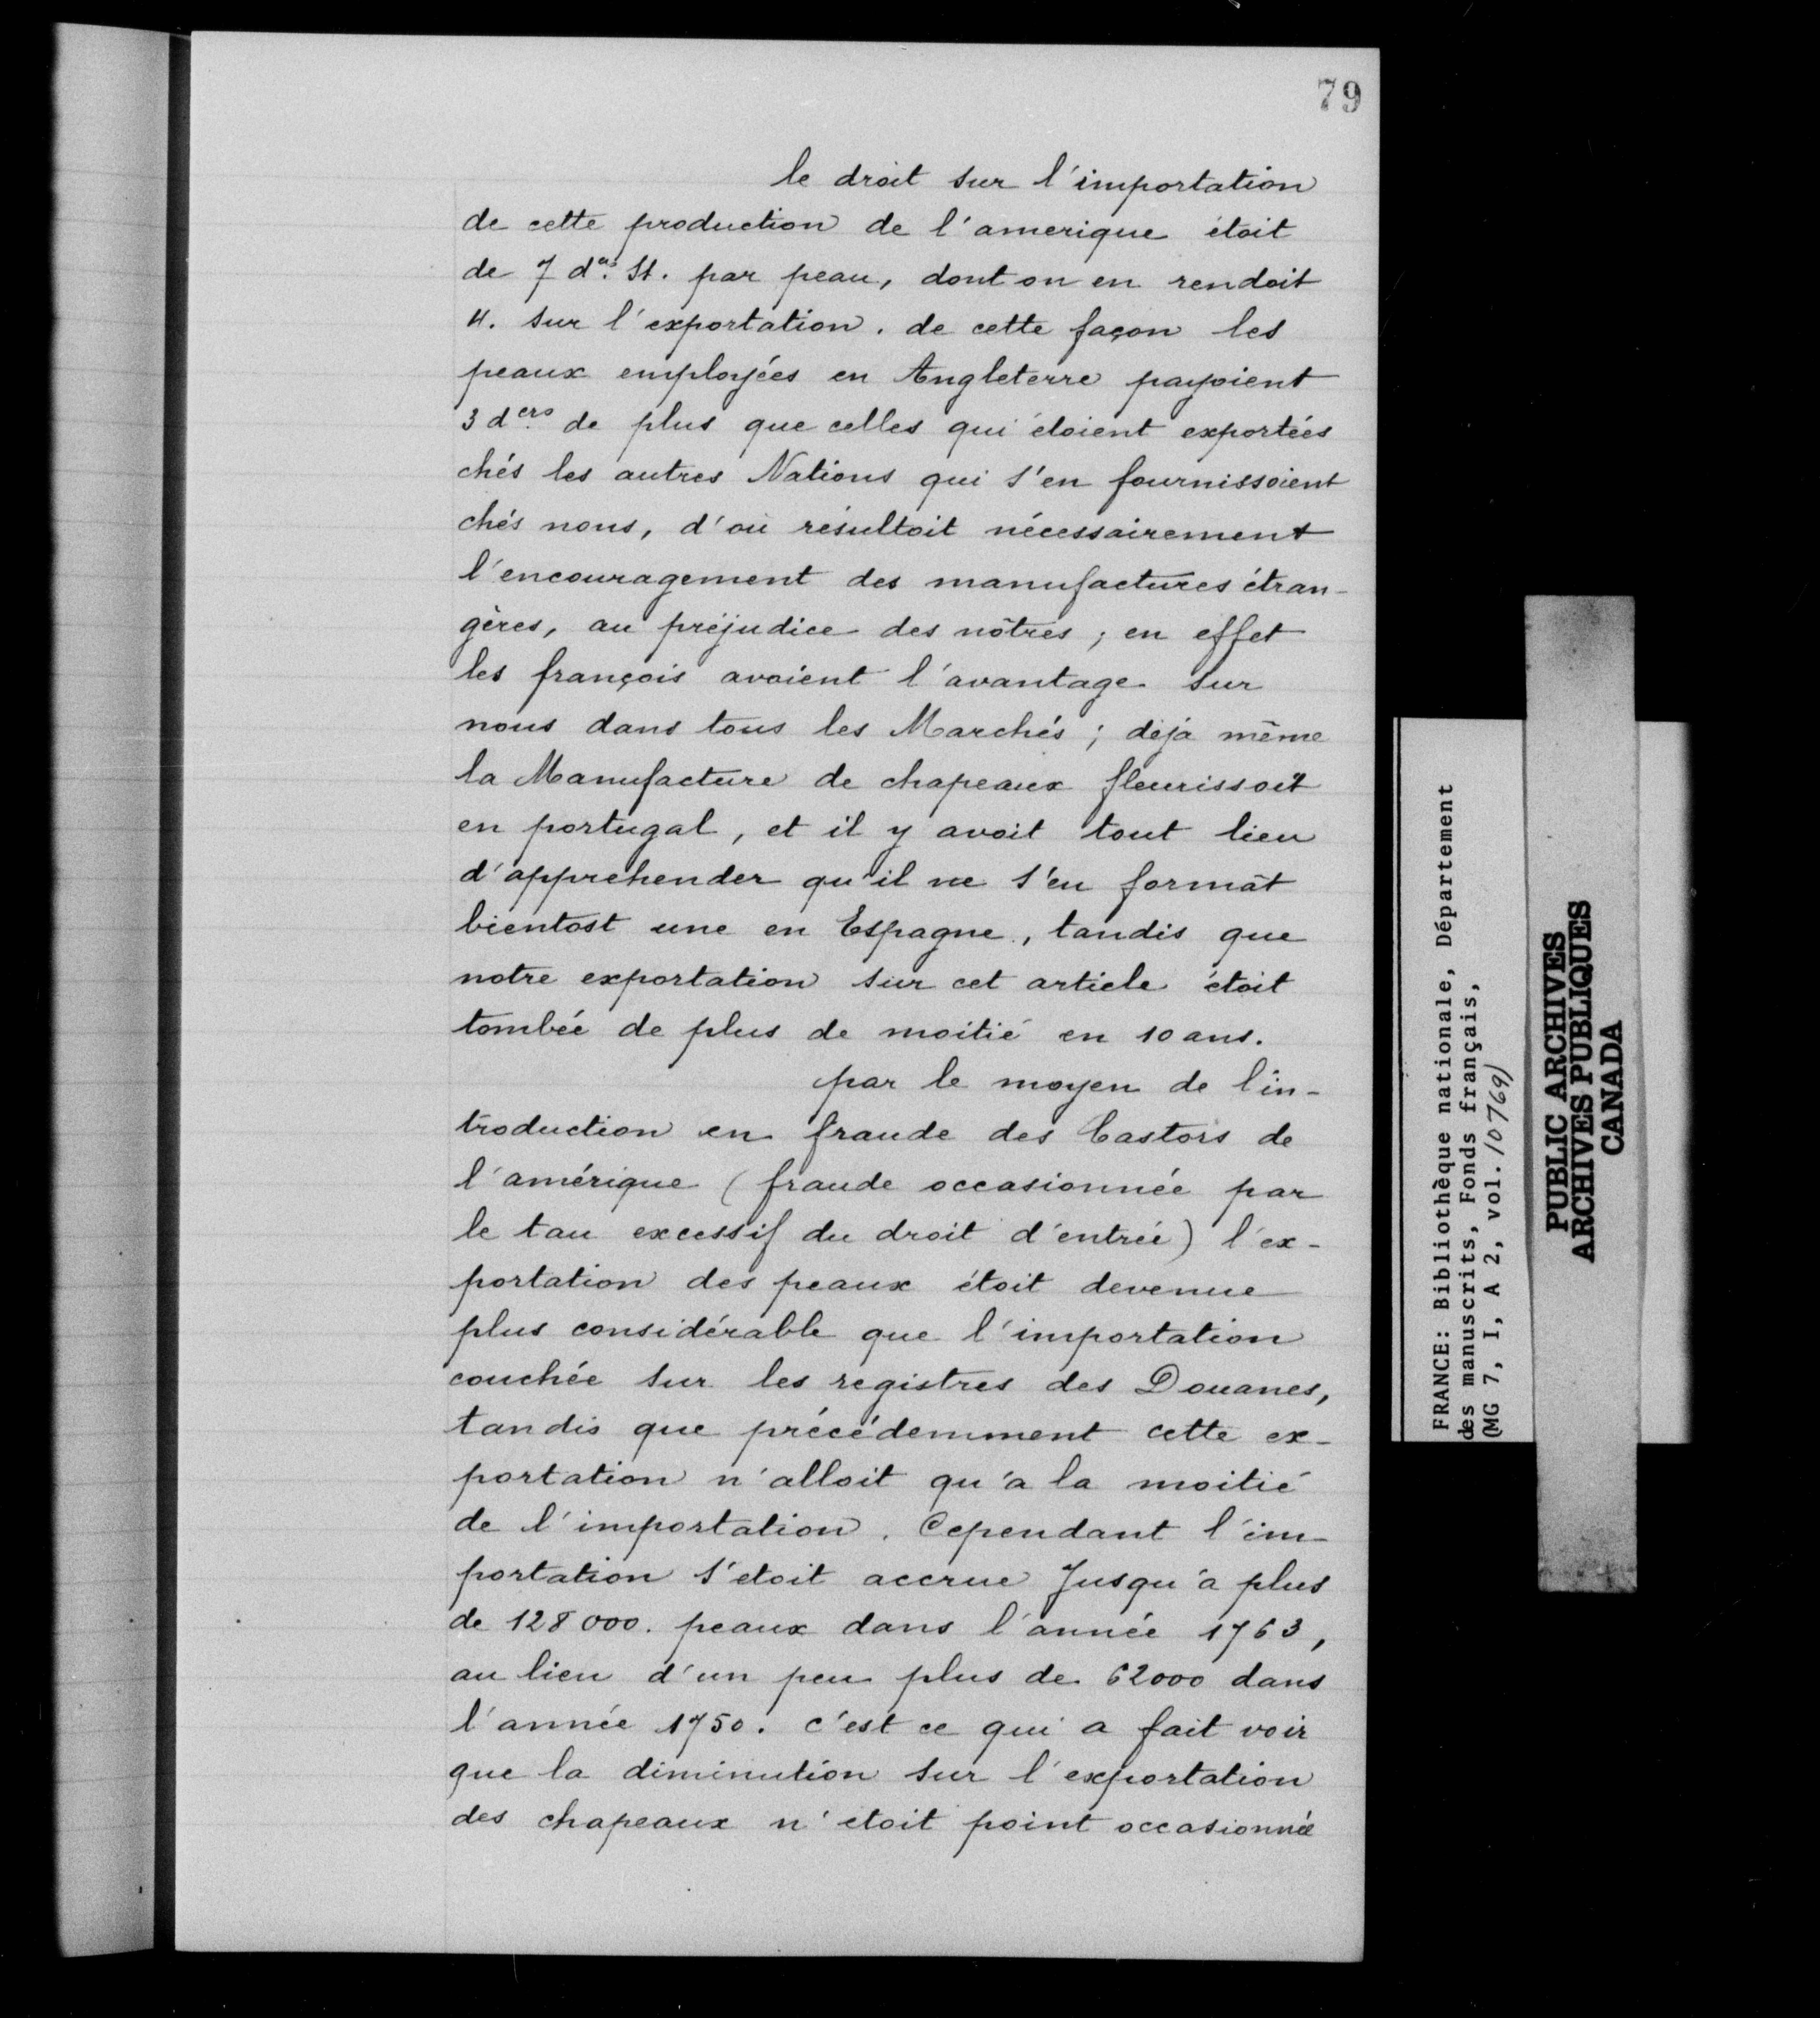 79
le droit sur l'importation
de cette production de l'amerique étoit
de 7 d.ers St. par peau, dont on en rendoit
4. sur l'exportation. de cette façon les
peaux employées en Angleterre payoient
3 d.ers de plus que celles qui étoient exportées
chés les autres Nations qui s'en fournissoient
chés nous, d'où résultoit nécessairement
l'encouragement des manufactures étran-
gères, au préjudice des nôtres ; en effet
les françois avoient l'avantage sur
nous dans tous les Marchés ; déjà même
la Manufacture de chapeaux fleurissoit
en portugal, et il y avoit tout lieu
d'apprehender qu'il ne s'en formât
bientost une en Espagne, tandis que
notre exportation sur cet article étoit
tombée de plus de moitié en 10 ans.
par le moyen de l'in-
troduction en fraude des Castors de
l'amérique (fraude occasionnée par
le tau excessif du droit d'entrée) l'ex-
portation des peaux étoit devenue
plus considérable que l'importation
couchée sur les registres des Douanes,
tandis que précédemment cette ex-
portation n'alloit qu'à la moitié
de l'importation. Cependant l'im-
portation s'etoit accrue Jusqu'à plus
de 128000. peaux dans l'année 1763,
au lieu d'un peu plus de 62000 dans
l'année 1750. c'est ce qui a fait voir
que la diminution sur l'exportation
des chapeaux n'etoit point occasionnée
FRANCE: Bibliothèque nationale, Département
des manuscrits, Fonds français,
(MG 7, I, A 2, vol. 10769)
PUBLIC ARCHIVES
ARCHIVES PUBLIQUES
CANADA